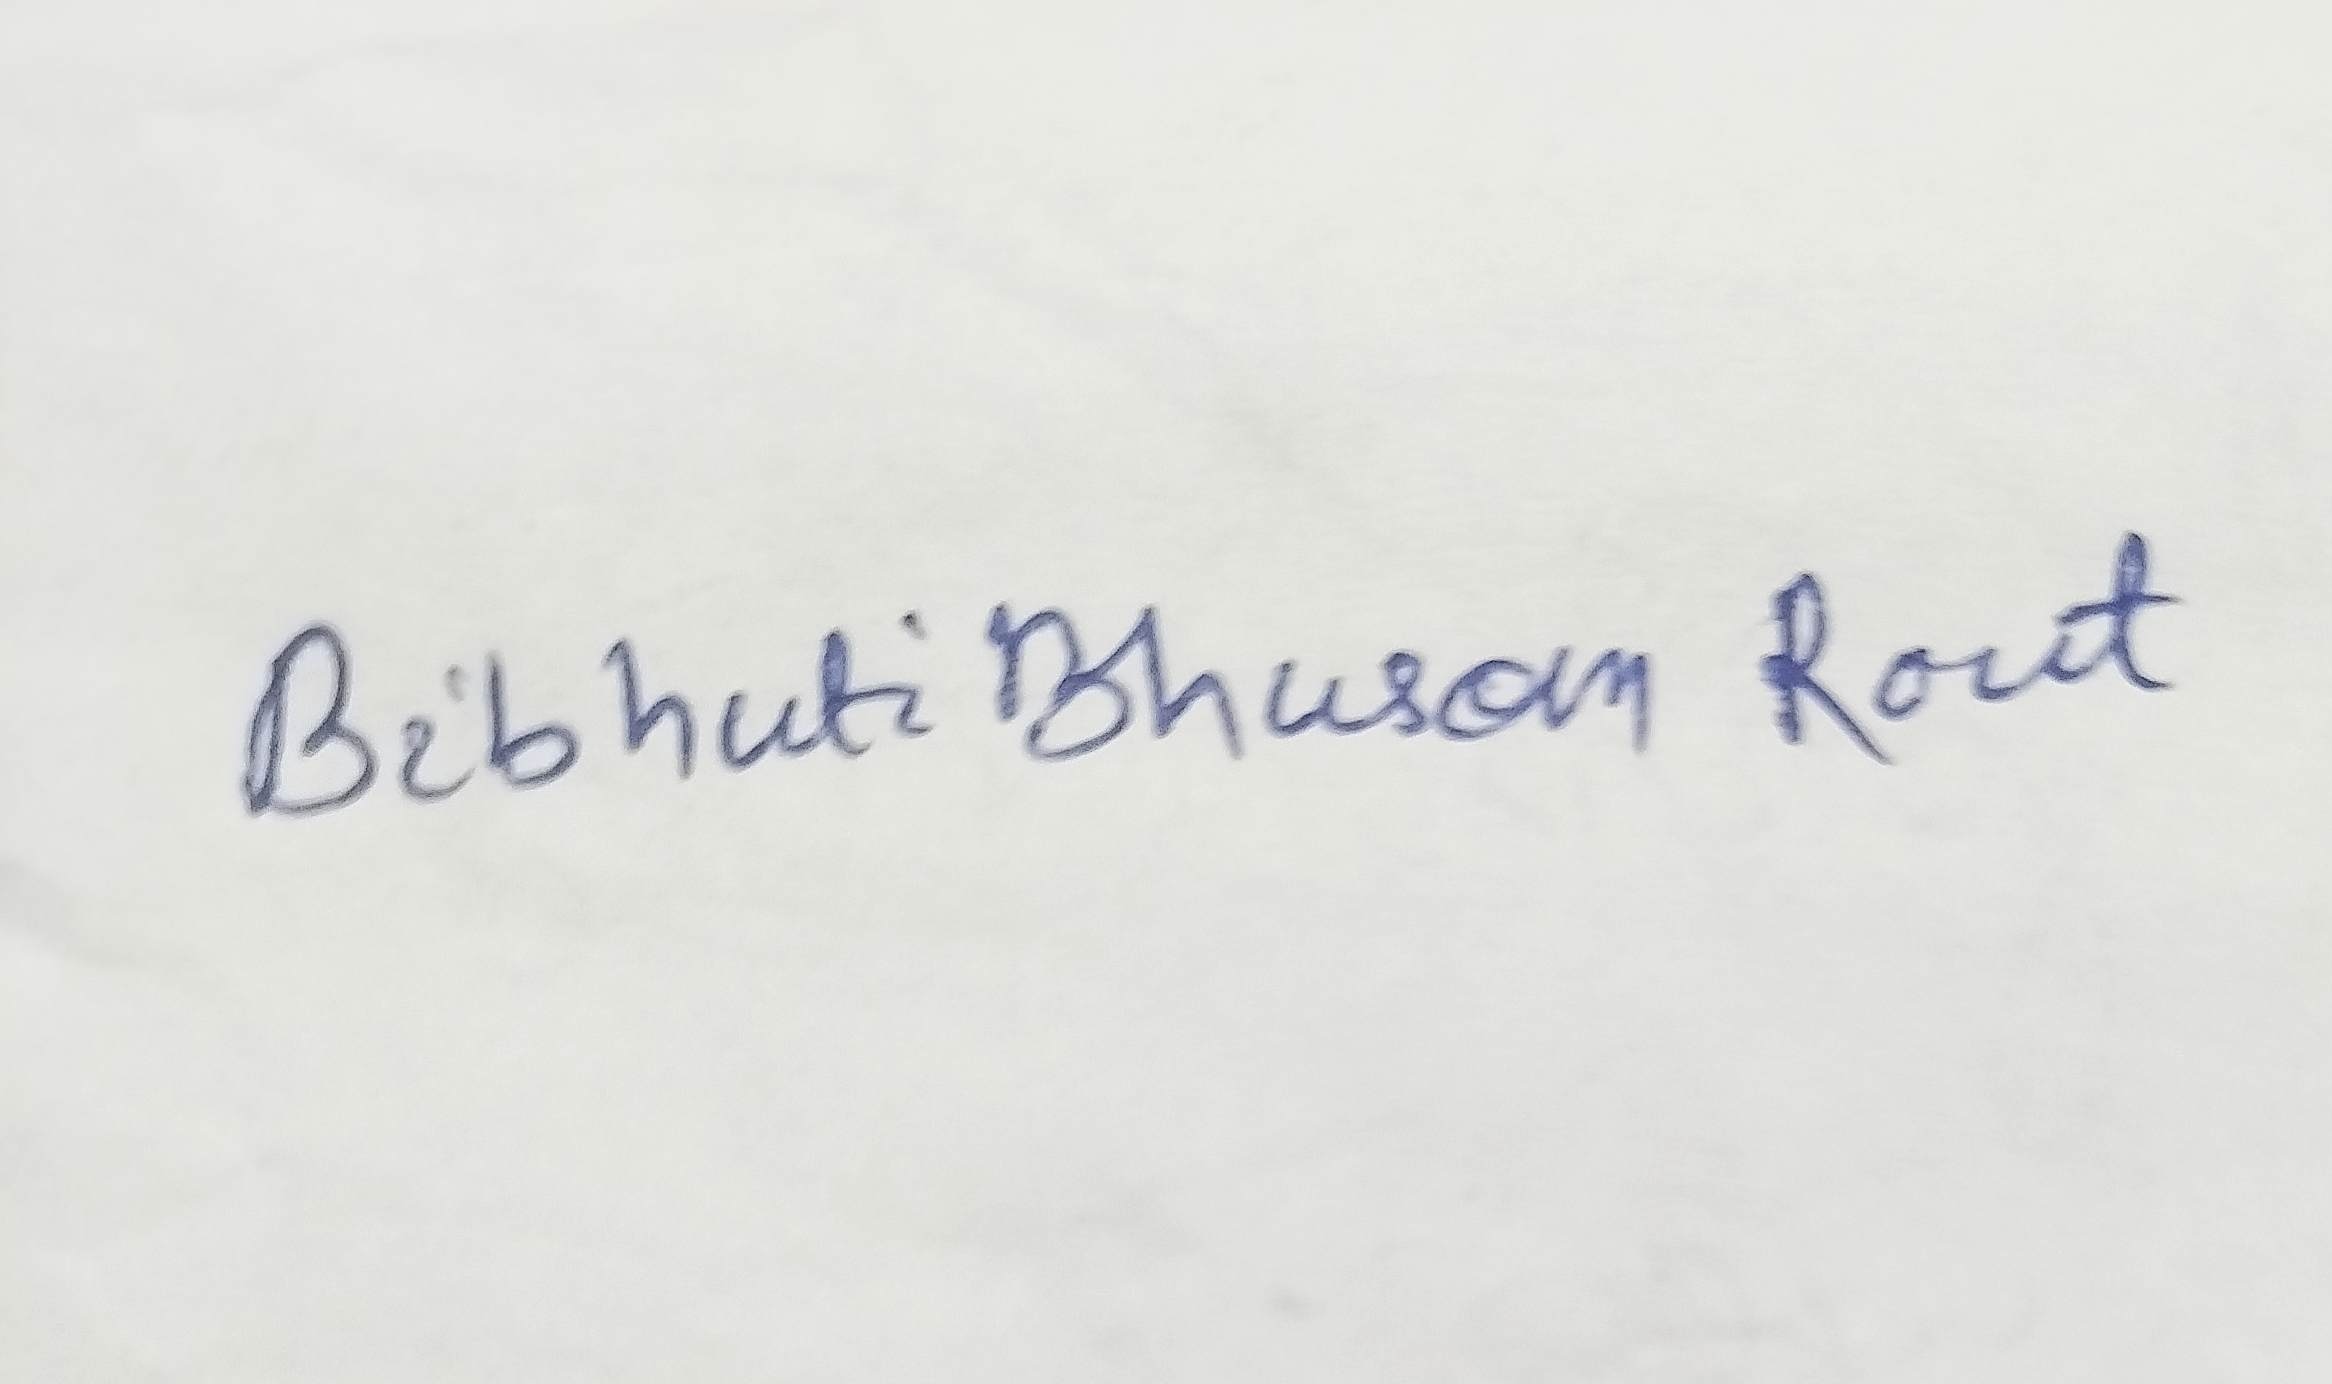 Bibhuti Bhusan Rout